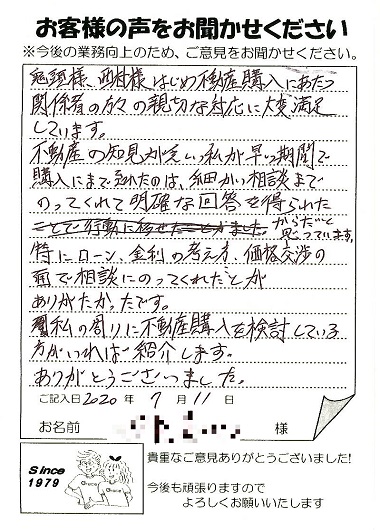 お客様の声をお聞かせください
※今後の業務向上のため、ご意見をお聞かせください。
様、西村様はじめ不動産購入にあたって
関係者の方々の親切な対応に大変満足
しています。
不動産の知見が乏しい私が早い期間で
購入にまで至れたのは、細かい相談まで
のってくれて明確な回答を得られた
からだと
思っています。
特にローン、金利の考え方、価格交渉の
面で相談にのってくれたことが
ありがたかったです。
私の周りに不動産購入を検討している
方がいれば紹介します。
ありがとうございました。
ご記入日 2020 年 7 月 11 日
お名前 様
Since
1979
貴重なご意見ありがとうございました!
今後も頑張りますので
よろしくお願いいたします